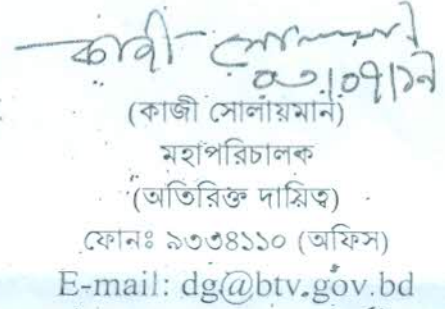 কাজী সোলায়মান
০৩/০৭/১৭
(কাজী সোলায়মান)
মহাপরিচালক
(অতিরিক্ত দায়িত্ব)
ফোনঃ ৯৩৩৪১১০ (অফিস)
E-mail: dg@btv.gov.bd